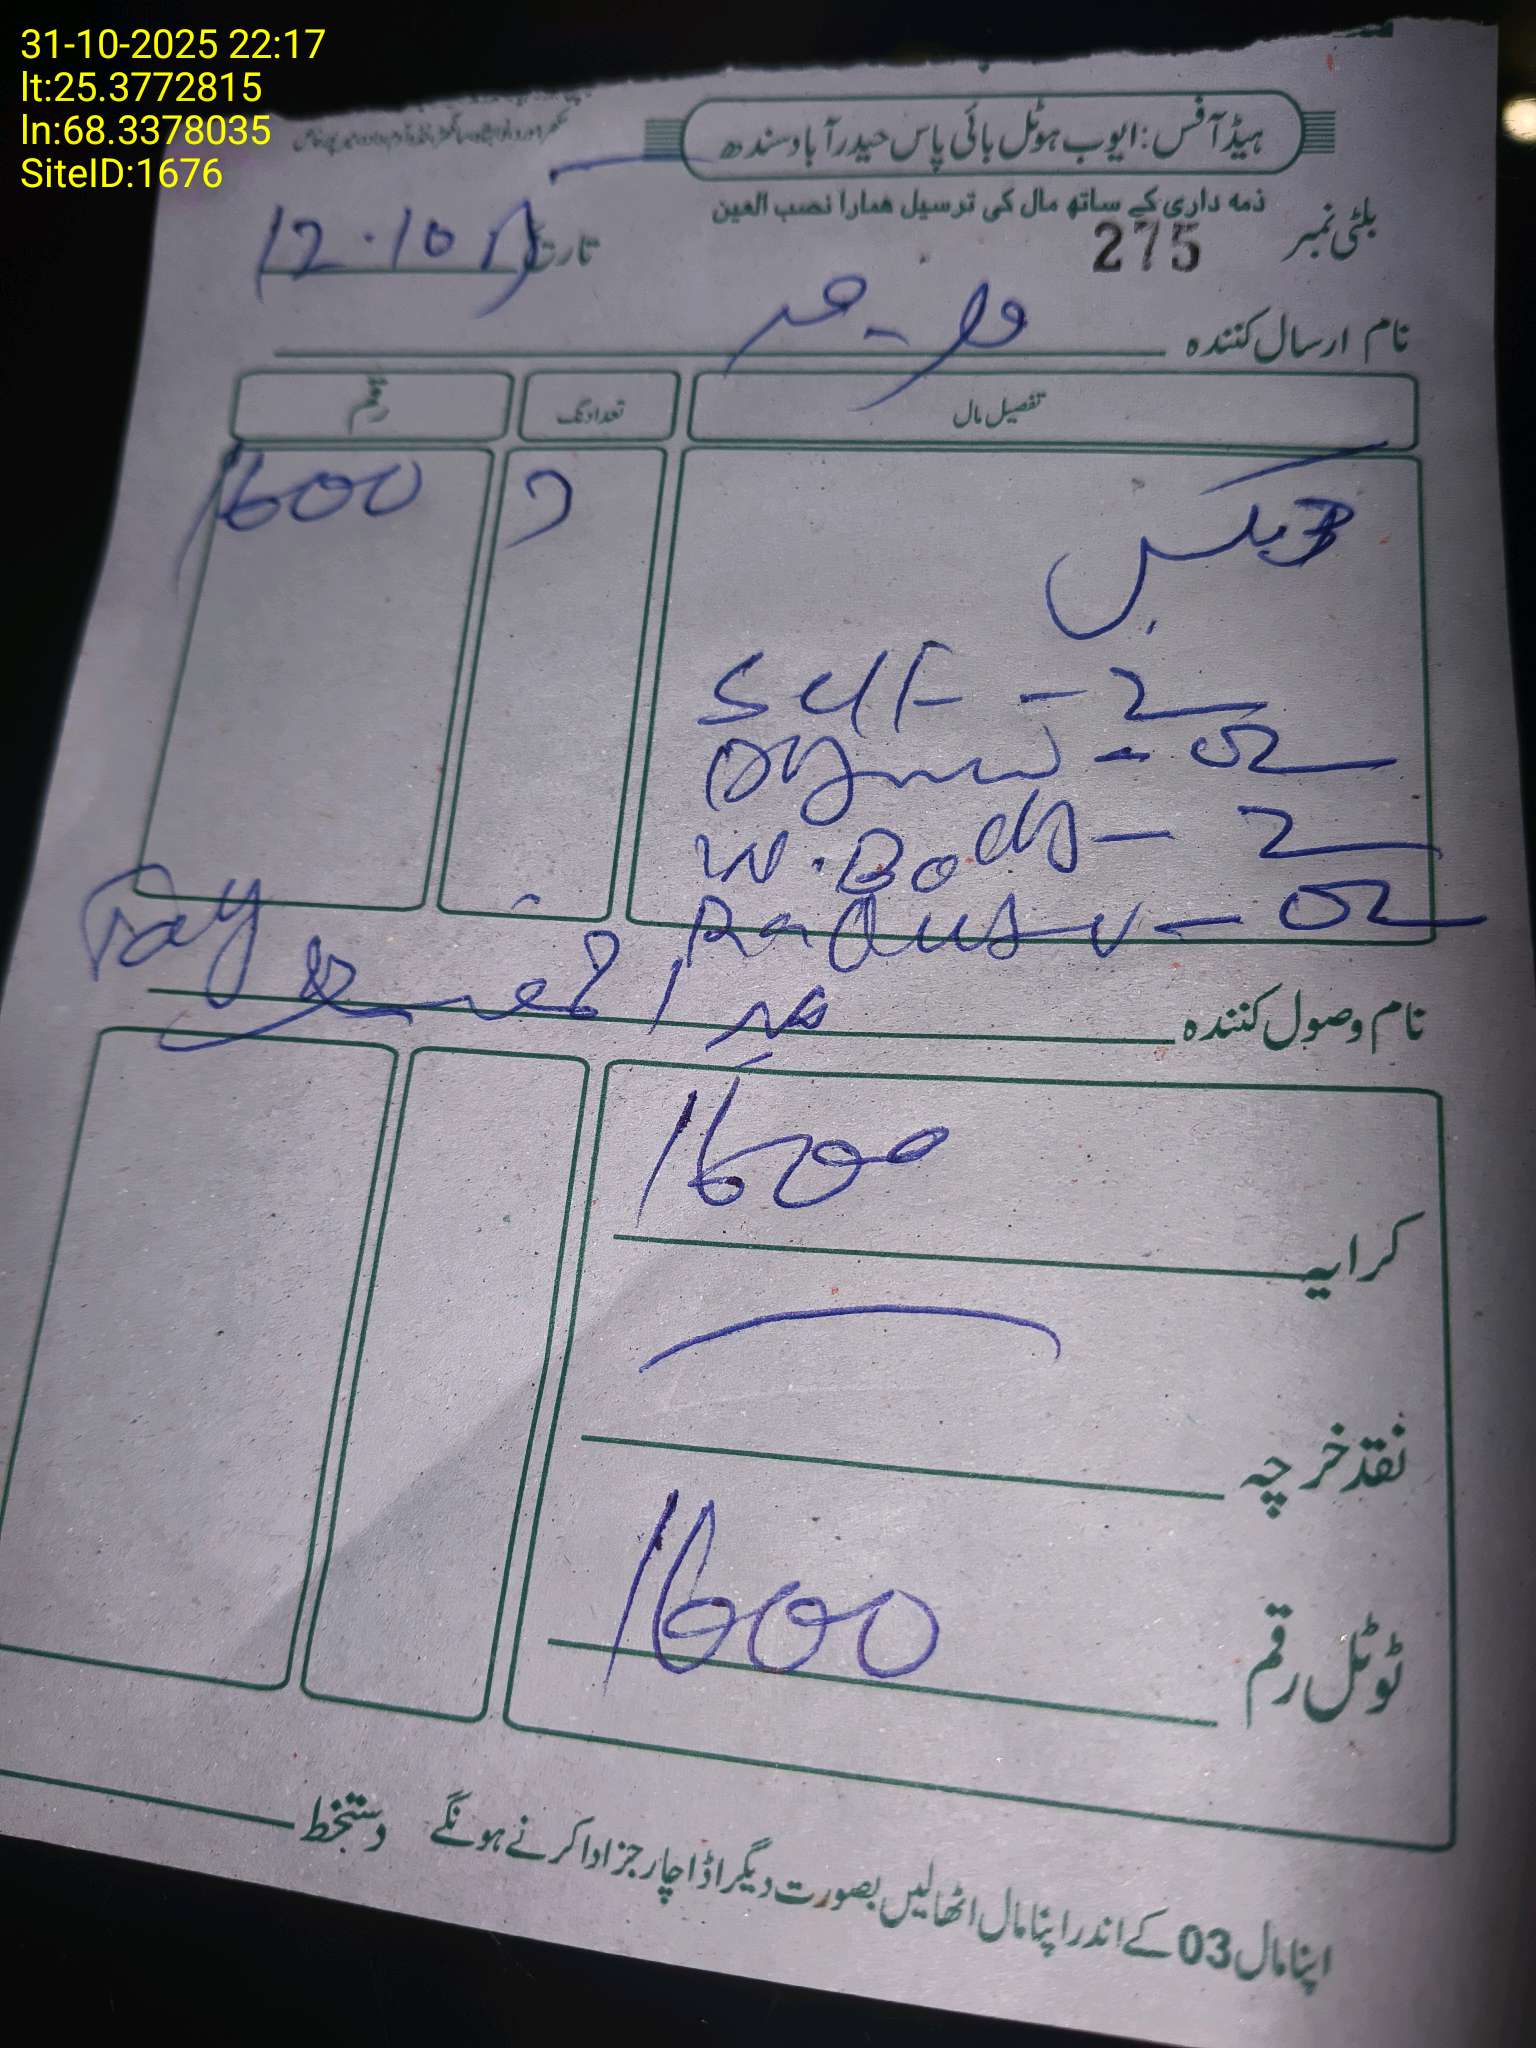 31-10-2025 22:17
lt:25.3772815
ln:68.3378035
SiteID:1676
ہیڈ آفس: ایوب ہوٹل بائی پاس حیدرآباد سندھ
ذمہ داری کے ساتھ مال کی ترسیل ہمارا نصب العین
بلٹی نمبر 275
تاریخ 12.10
نام ارسال کنندہ
تفصیل مال تعداد نگ رقم
3 بکس 1600
Self - 2
- 02
W. Body - 2
- 02
Pay
نام وصول کنندہ
کرایہ 1600
نقد خرچہ
ٹوٹل رقم 1600
دستخط
اپنا مال 03 کے اندر اپنا مال اٹھالیں بصورت دیگر اڈا چارجز ادا کرنے ہونگے